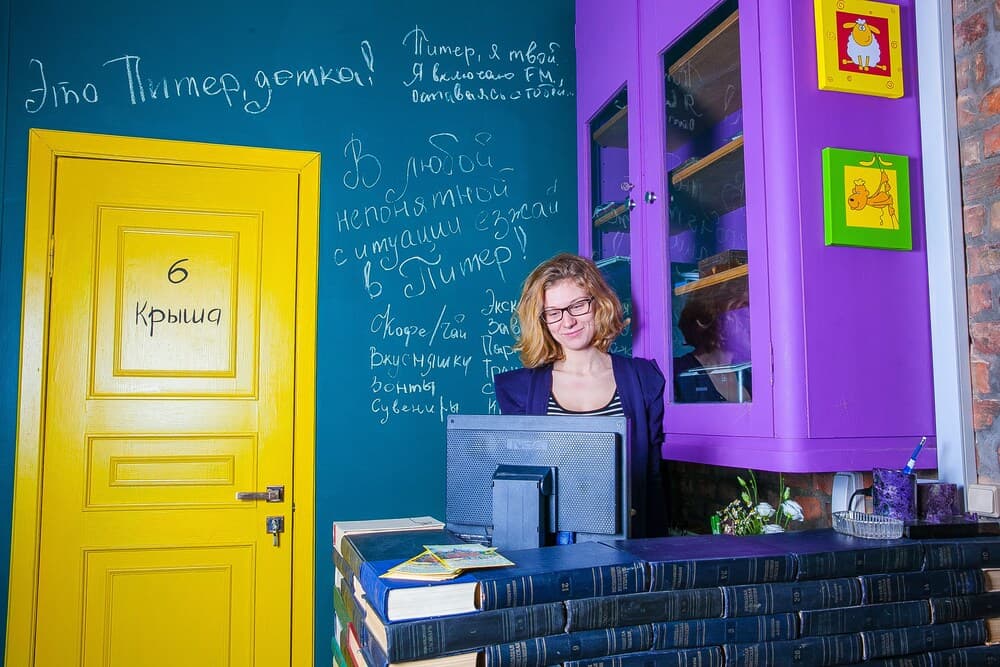 Это Питер, детка!
Питер, я твой.
Я включаю FM,
оставаясь с тобой...
В любой
непонятной
ситуации езжай
в Питер!
6
Крыша
Кофе/Чай
Вкусняшку
Зонты
Сувениры
Экск
За